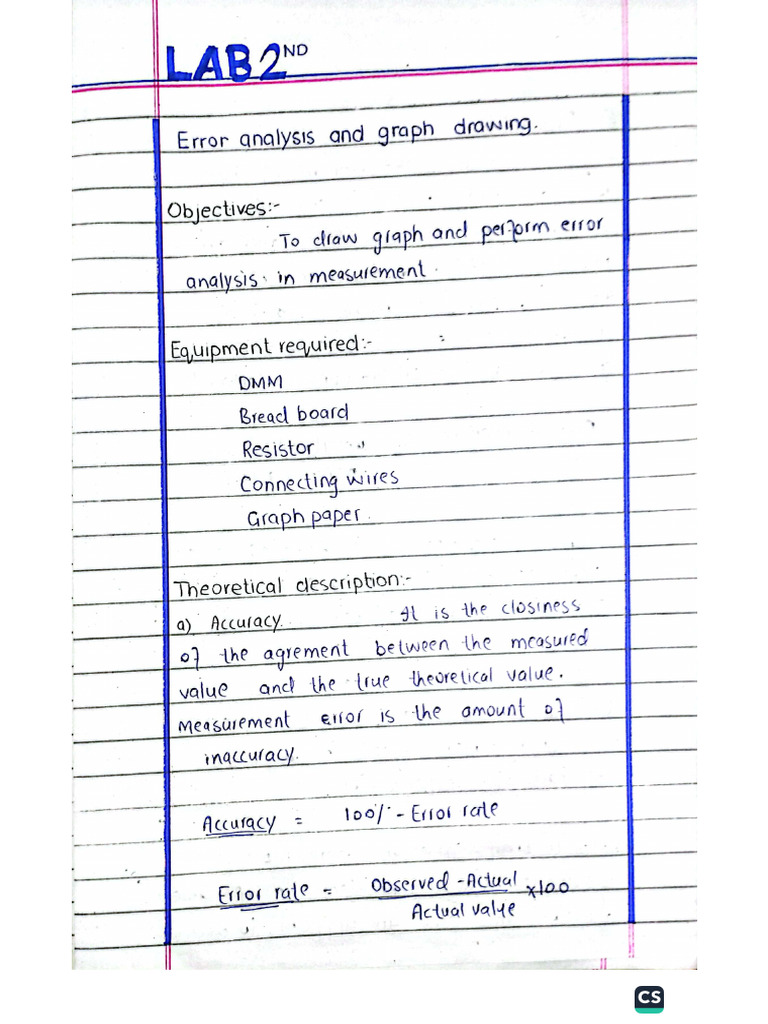 LAB 2ND
Error analysis and graph drawing.
Objectives:-
To draw graph and perform error
analysis in measurement.
Equipment required:-
DMM
Bread board
Resistor
Connecting wires
Graph paper.
Theoretical description:-
a) Accuracy. It is the closiness
of the agrement between the measured
value and the true theoretical value.
Measurement error is the amount of
inaccuracy.
Accuracy = 100% - Error rate
Error rate = Observed - Actual x100
Actual value
CS